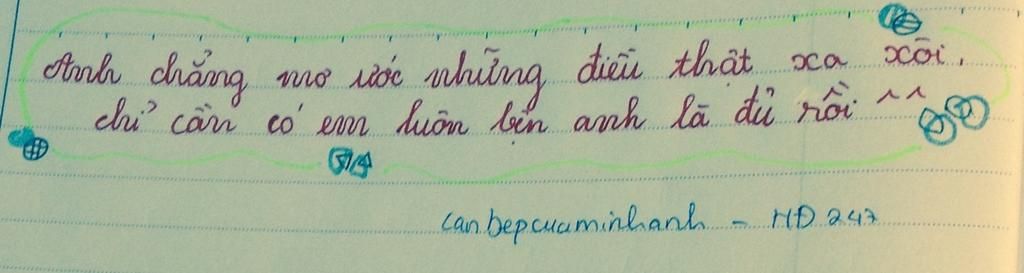 Anh chẳng mơ ước những điều thật xa xôi.
chỉ cần có em luôn bên anh là đủ rồi ^^
canbepcuaminhanh - HĐ 247